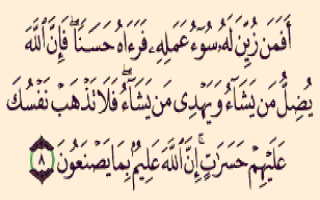 أَفَمَن زُيِّنَ لَهُۥ سُوٓءُ عَمَلِهِۦ فَرَءَاهُ حَسَنًا ۖ فَإِنَّ ٱللَّهَ
يُضِلُّ مَن يَشَآءُ وَيَهْدِى مَن يَشَآءُ ۖ فَلَا تَذْهَبْ نَفْسُكَ
عَلَيْهِمْ حَسَرَٰتٍ ۚ إِنَّ ٱللَّهَ عَلِيمٌۢ بِمَا يَصْنَعُونَ ٨